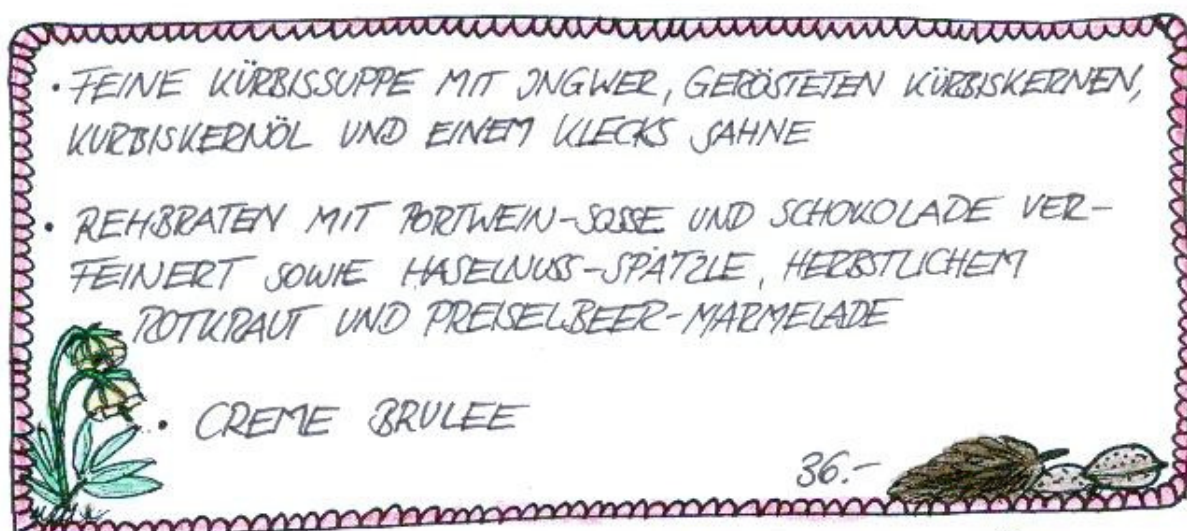 · FEINE KÜRBISSUPPE MIT INGWER, GERÖSTETEN KÜRBISKERNEN,
KURBISKERNÖL UND EINEM KLECKS SAHNE
· REHBRATEN MIT PORTWEIN-SOSSE UND SCHOKOLADE VER-
FEINERT SOWIE HASELNUSS-SPÄTZLE, HERBSTLICHEM
ROTKRAUT UND PREISELBEER-MARMELADE
· CREME BRULEE
36.-